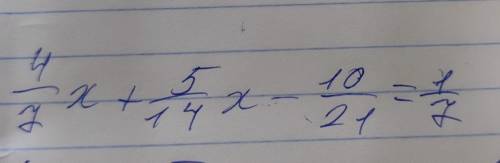 4/7 x + 5/14 x - 10/21 = 1/7